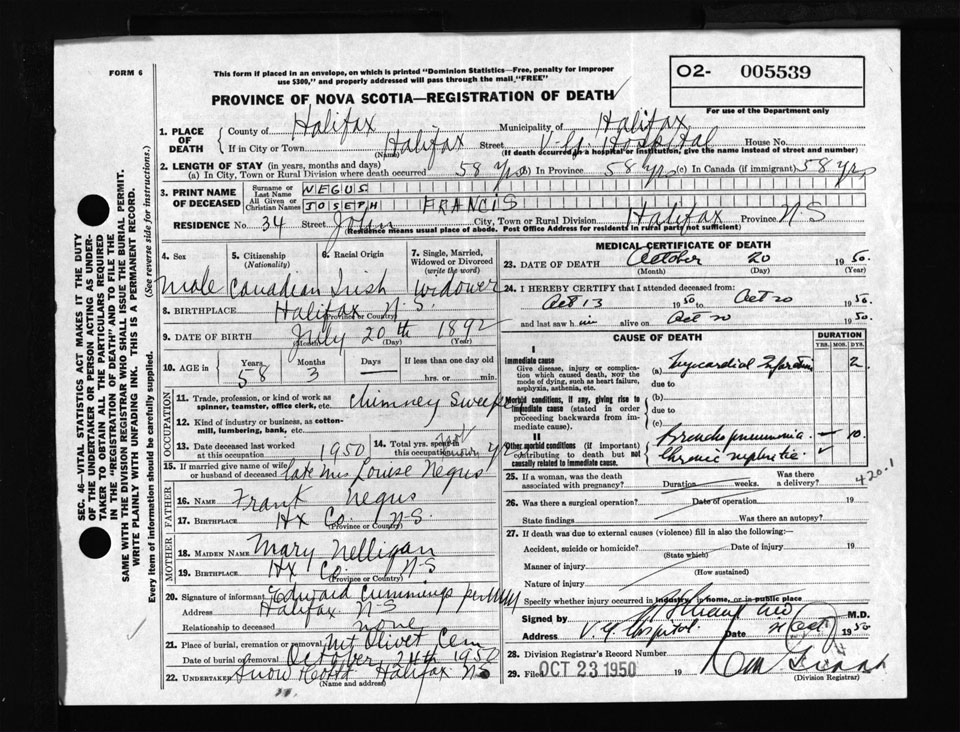 FORM 6
This form if placed in an envelope, on which is printed "Dominion Statistics—Free, penalty for improper
use $300," and properly addressed will pass through the mail "FREE"
O2- 005539
For use of the Department only
PROVINCE OF NOVA SCOTIA—REGISTRATION OF DEATH
1. PLACE OF DEATH
County of Halifax Municipality of Halifax
If in City or Town Halifax Street V.G. Hospital House No.
(Name) (If death occurred in a hospital or institution, give the name instead of street and number)
2. LENGTH OF STAY (in years, months and days)
(a) In City, Town or Rural Division where death occurred 58 yrs (b) In Province 58 yrs (c) In Canada (if immigrant) 58 yrs
3. PRINT NAME OF DECEASED
Surname or Last Name NEGUS
All Given or Christian Names JOSEPH FRANCIS
RESIDENCE No. 34 Street John City, Town or Rural Division Halifax Province N S
(Residence means usual place of abode. Post Office Address for residents in rural parts not sufficient)
4. Sex 5. Citizenship (Nationality) 6. Racial Origin 7. Single, Married, Widowed or Divorced (write the word)
Male Canadian Irish Widower
8. BIRTHPLACE Halifax N-S
(Province or Country)
9. DATE OF BIRTH July 20th 1892
(Month) (Day) (Year)
10. AGE in Years 58 Months 3 Days — If less than one day old
hrs. or min.
OCCUPATION
11. Trade, profession, or kind of work as spinner, teamster, office clerk, etc. Chimney Sweeper
12. Kind of industry or business, as cotton-mill, lumbering, bank, etc.
13. Date deceased last worked at this occupation 1950
14. Total yrs. spent in this occupation
15. If married give name of wife or husband of deceased late Mrs Louise Negus
FATHER
16. NAME Frank Negus
17. BIRTHPLACE Hx Co. N-S.
(Province or Country)
MOTHER
18. MAIDEN NAME Mary Nelligan
19. BIRTHPLACE Hx Co. N-S
(Province or Country)
20. Signature of informant Edward Cummings per
Address Halifax N-S
Relationship to deceased none
21. Place of burial, cremation or removal Mt Olivet Cem
Date of burial or removal October 24th 1950
22. UNDERTAKER Snow Halifax NS
(Name and address)
MEDICAL CERTIFICATE OF DEATH
23. DATE OF DEATH October 20 1950.
(Month) (Day) (Year)
24. I HEREBY CERTIFY that I attended deceased from:
Oct 13 1950 to Oct 20 1950.
and last saw him alive on Oct 20 1950.
CAUSE OF DEATH DURATION
YRS. MOS. DYS.
I
Immediate cause
Give disease, injury or complication which caused death, NOT the mode of dying, such as heart failure, asphyxia, asthenia, etc.
(a) Myocardial Infarction 2
due to
Morbid conditions, if any, giving rise to immediate cause (stated in order proceeding backwards from immediate cause).
(b)
due to
(c)
II
Other morbid conditions (if important) contributing to death but not causally related to immediate cause.
Broncho pneumonia — 10
Chronic nephritis
420.1
25. If a woman, was the death associated with pregnancy? Duration weeks. Was there a delivery?
26. Was there a surgical operation? Date of operation 19
State findings Was there an autopsy?
27. If death was due to external causes (violence) fill in also the following:—
Accident, suicide or homicide? Date of injury 19
(State which)
Manner of injury
(How sustained)
Nature of injury
Specify whether injury occurred in industry, in home, or in public place
Signed by M.D.
Address V. G. Hospital. Date Oct 1950
28. Division Registrar's Record Number
29. Filed OCT 23 1950 19
(Division Registrar)
SEC. 46—VITAL STATISTICS ACT MAKES IT THE DUTY
OF THE UNDERTAKER OR PERSON ACTING AS UNDER-
TAKER TO OBTAIN ALL THE PARTICULARS REQUIRED
IN THE "REGISTRATION OF DEATH" AND TO FILE THE
SAME WITH THE DIVISION REGISTRAR WHO SHALL ISSUE THE BURIAL PERMIT.
WRITE PLAINLY WITH UNFADING INK. THIS IS A PERMANENT RECORD.
Every item of information should be carefully supplied. (See reverse side for instructions.)